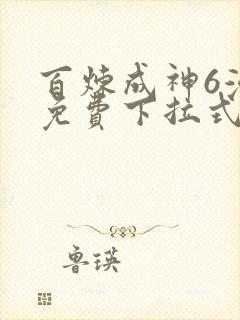 百炼成神6
免费下拉式
鲁瑛